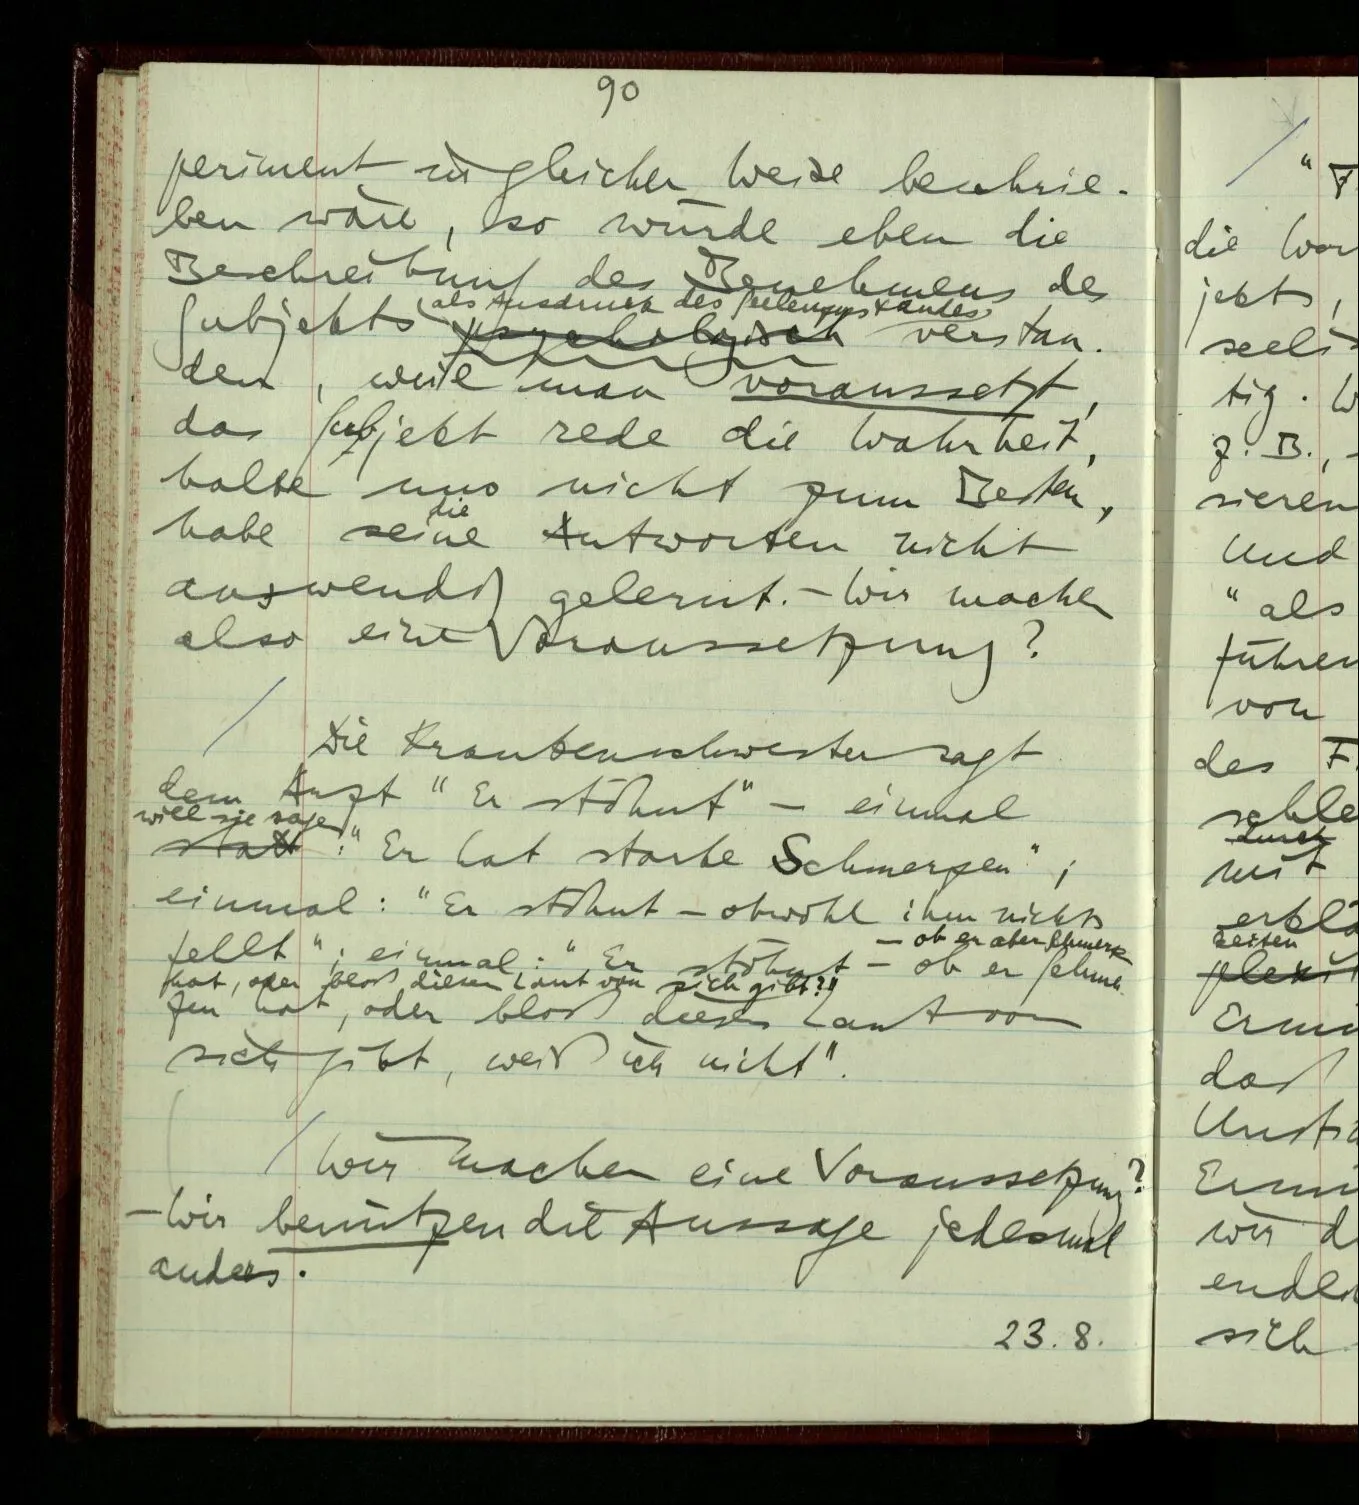 90
periment in gleicher Weise beschrie-
ben wäre, so würde eben die
Beschreibung des Benehmens des
als Ausdruck des Seelenzustandes
Subjekts psychologisch verstan-
den, weil man voraussetzt,
das Subjekt rede die Wahrheit,
halte uns nicht zum Besten,
die
habe seine Antworten nicht
auswendig gelernt. – Wir machen
also eine Voraussetzung?
Die Krankenschwester sagt
dem Arzt "Er stöhnt" – einmal
will sie sagen
statt: "Er hat starke Schmerzen";
einmal: "Er stöhnt – obwohl ihm nichts
– ob er aber Schmerzen
fehlt"; einmal: "Er stöhnt – ob er Schmer-
hat, oder bloß diesen Laut von sich gibt?"
zen hat, oder bloß diesen Laut von
sich gibt, weiß ich nicht".
Wir machen eine Voraussetzung?
– Wir benützen die Aussage jedesmal
anders.
23.8.
"
die
jekts,
seeli
tig. W
z.B.,
sieren
Und
"als
führen
von
des
durch
mit
erklä
zeiten
Ermü
daß
Ermü
wir d
endlo
sich